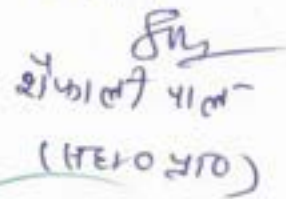 शैफाली पाल
(सहा० प्रा०)